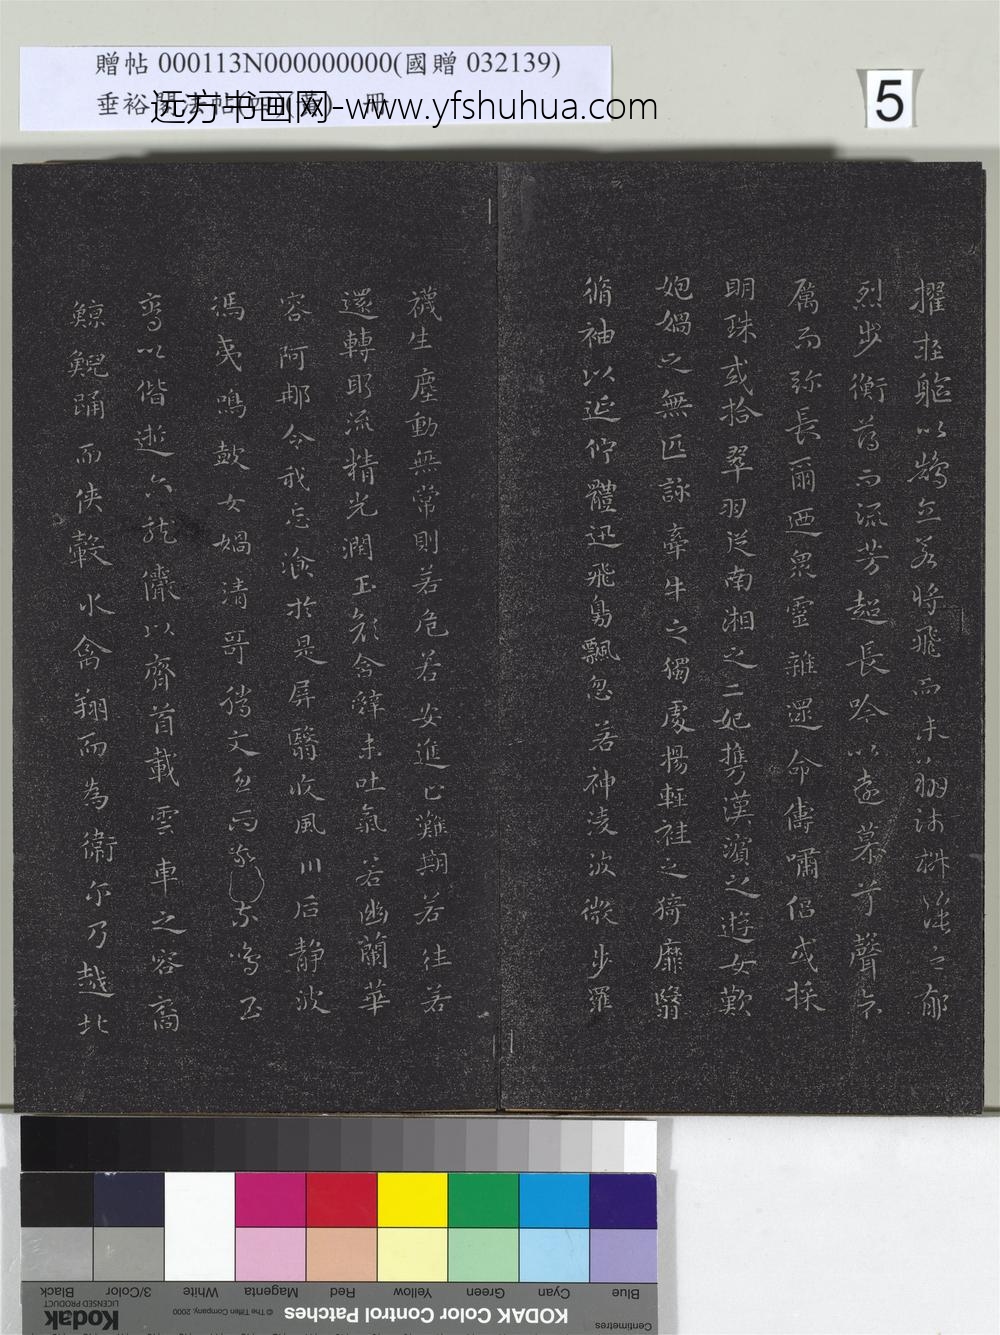 贈帖 000113N000000000(國贈 032139)
远方书画网-www.yfshuhua.com
垂裕 冊
5
擢軽軀以鶴立若將飛而未翔踐椒塗之郁
烈步衡薄而流芳超長吟以遠慕兮聲哀
厲而弥長爾迺衆靈雜遝命儔嘯侶或採
明珠或拾翠羽従南湘之二妃携漢濵之遊女歎
匏媧之無匹詠牽牛之獨處揚輕袿之猗靡翳
脩袖以延佇體迅飛鳬飄忽若神淩波微步羅
襪生塵動無常則若危若安進止難期若往若
還轉眄流精光潤玉顔含辭未吐氣若幽蘭華
容阿那令我忘湌於是屏翳收風川后静波
馮夷鳴鼓女媧清哥騰文魚而警 鳴玉
鸞以偕逝六龍儼以齊首載雲車之容裔
鯨鯢踊而侠轂水禽翔而為衛尓乃越北
Blue
Cyan
Green
Yellow
Red
Magenta
White
3/Color
Black
Centimetres
KODAK Color Control Patches
© The Tiffen Company, 2000
Kodak
LICENSED PRODUCT